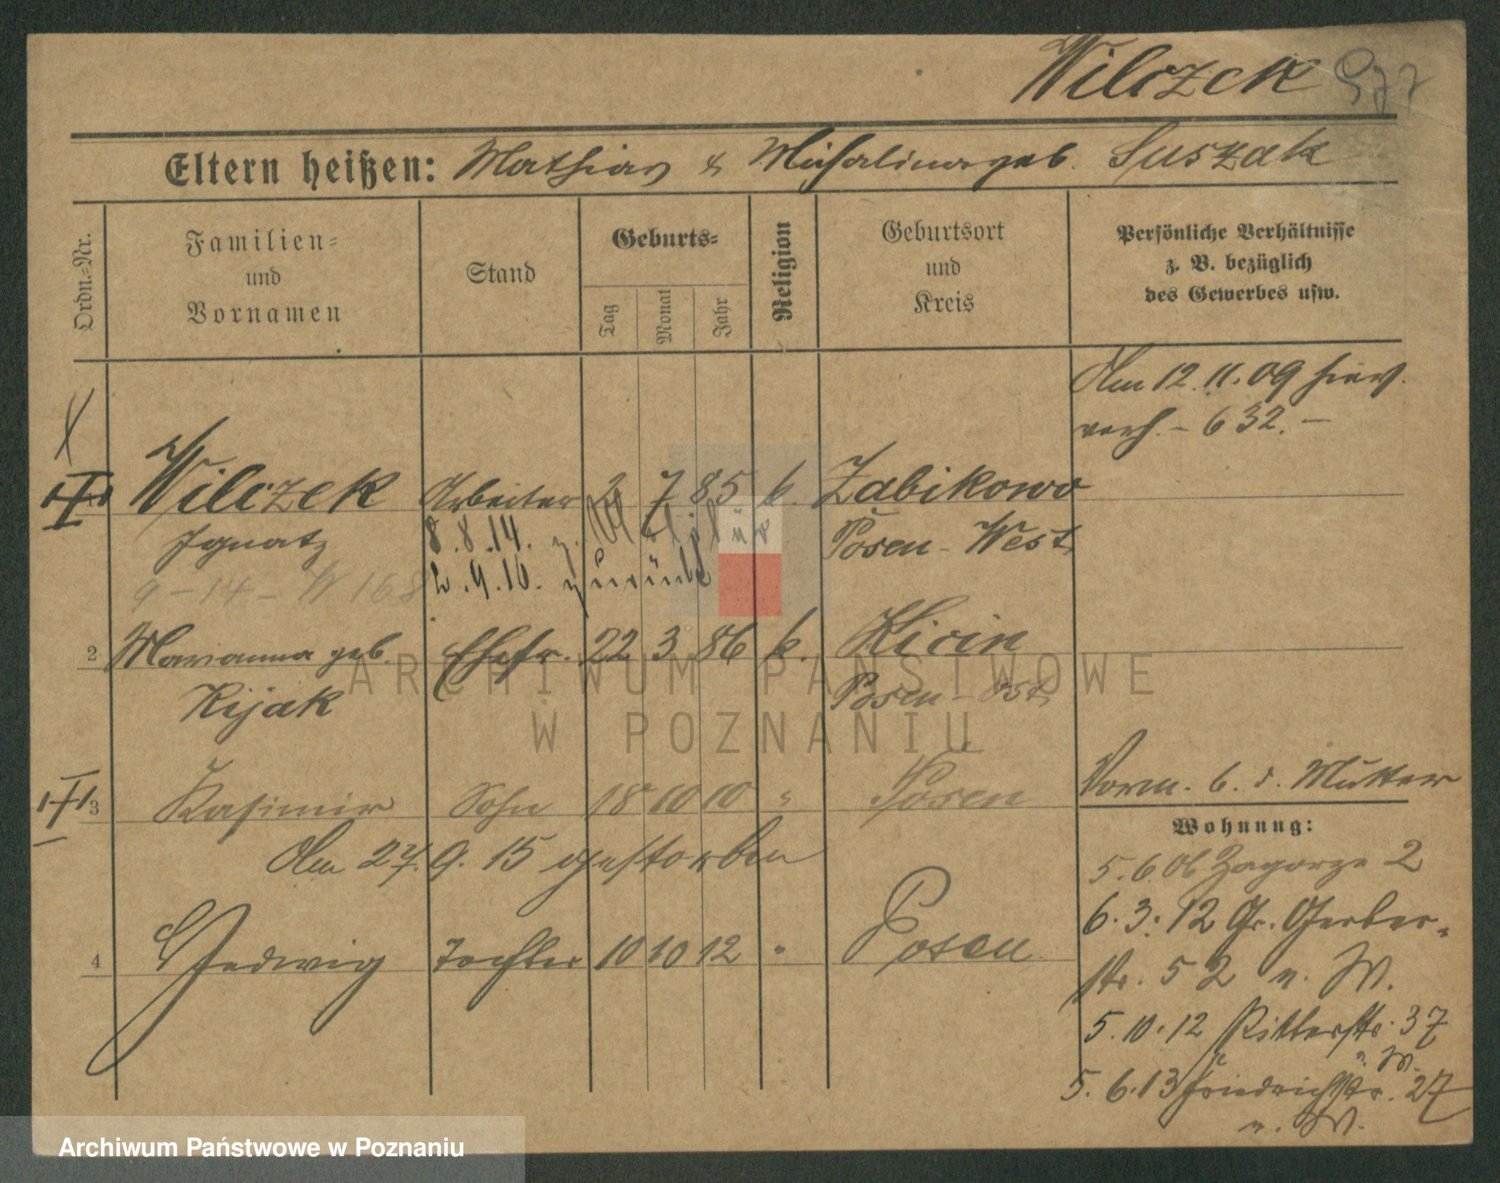 Wilczek 577
Eltern heißen: Mathias & Michalina geb. Suszak
Ordn.=Nr.
Familien=
und
Vornamen
Stand
Geburts=
Tag
Monat
Jahr
Religion
Geburtsort
und
Kreis
Persönliche Verhältnisse
z. B. bezüglich
des Gewerbes usw.
Am 12.11.09 hier
verh. – 632. –
1 Wilczek Arbeiter 2 7 85 k. Zabikowo
Ignatz Posen-West
8.8.14. z. Militär
2.9.16. zurück
9-14-W 168
2 Marianna geb. Ehefr. 22 3 86 k. Kicin
Kijak Posen-Ost
3 Kasimir Sohn 18 10 10 " Posen
Am 27.9.15 gestorben
4 Hedwig Tochter 10 10 12 " Posen
Vorm. b. d. Mutter
Wohnung:
5.6.06 Zagorze 2
6.3.12 Gr. Gerber-
str. 52 n. W.
5.10.12 Ritterstr. 37
n. W.
5.6.13 Friedrichstr. 27
n. W.
ARCHIWUM PAŃSTWOWE
W POZNANIU
Archiwum Państwowe w Poznaniu